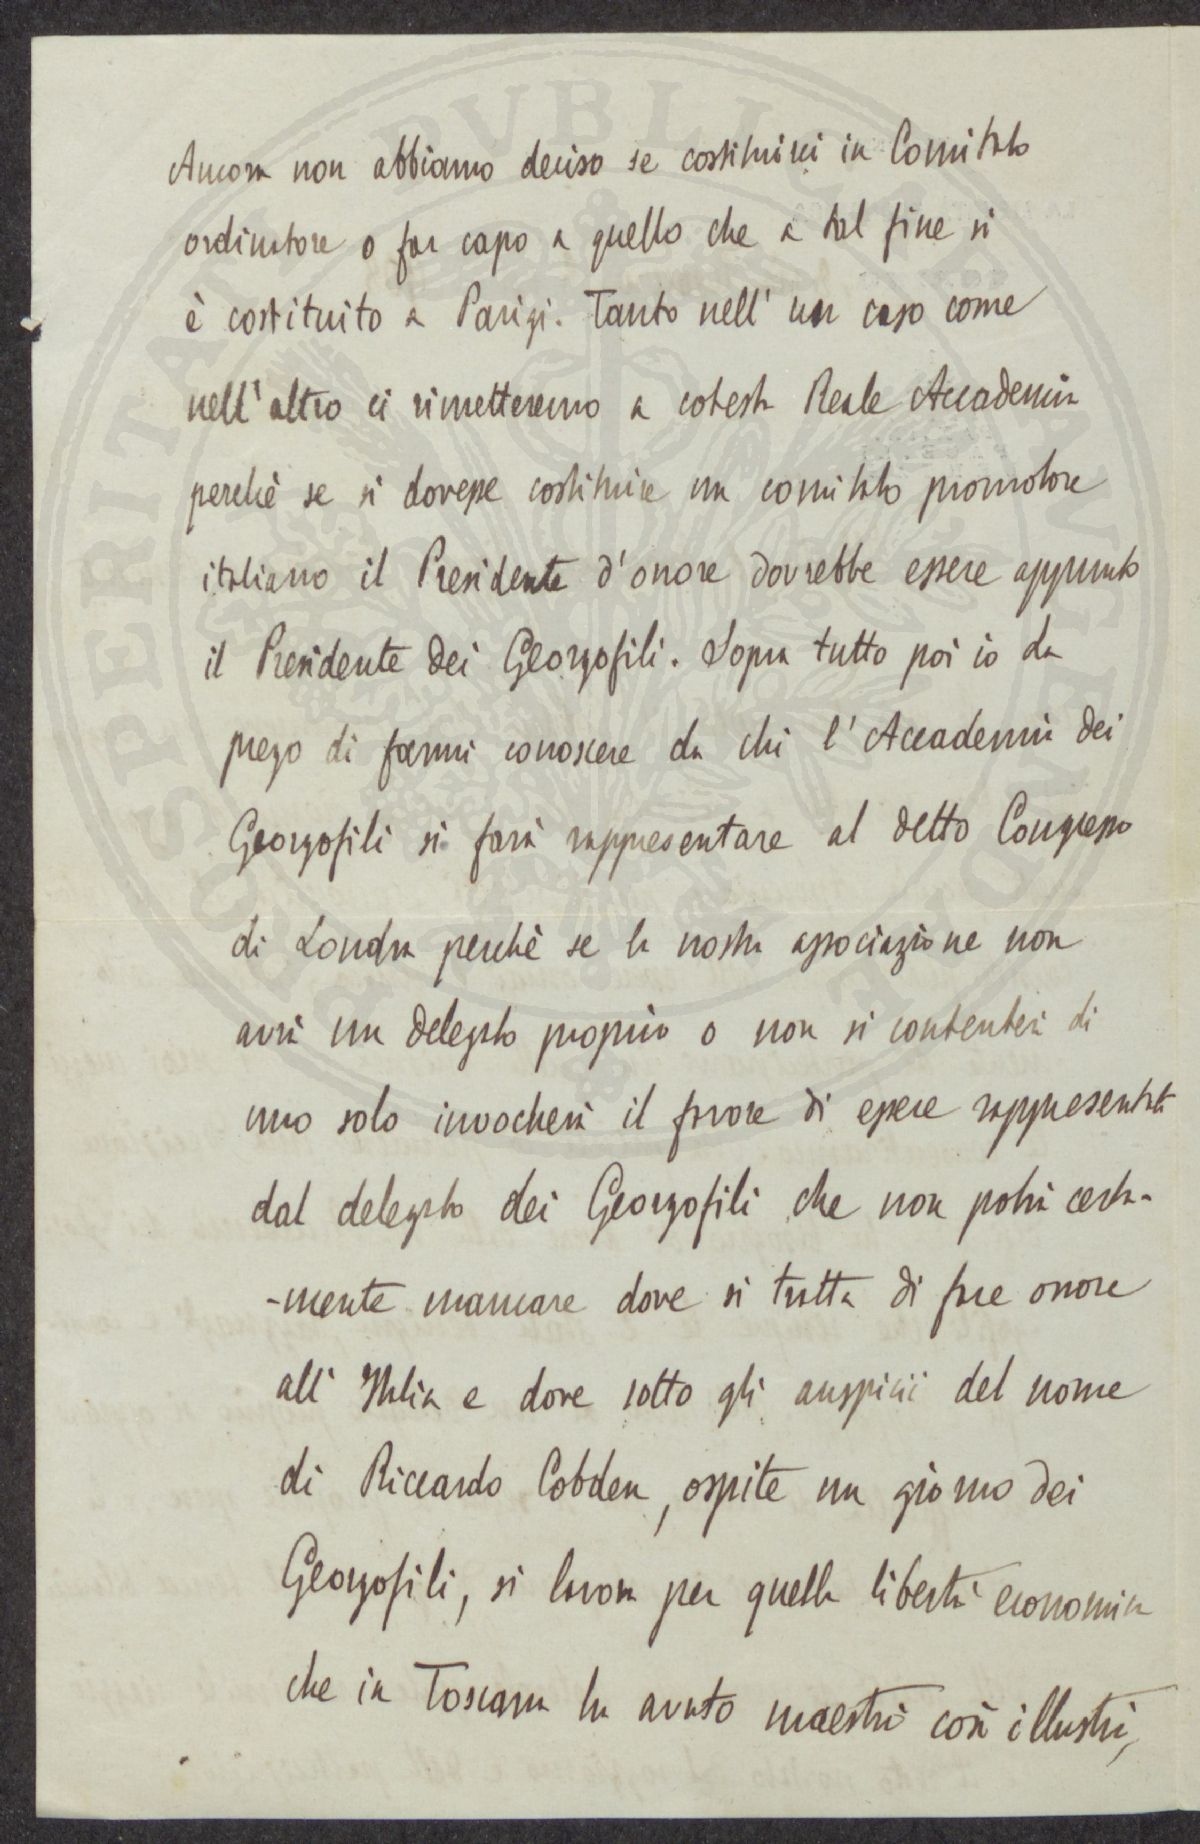 Ancora non abbiamo deciso se costituirci in Comitato
ordinatore o far capo a quello che a tal fine si
è costituito a Parigi. Tanto nell' un caso come
nell' altro ci rimetteremo a cotesta Reale Accademia
perchè se si dovesse costituire un comitato promotore
italiano il Presidente d'onore dovrebbe essere appunto
il Presidente dei Georgofili. Sopra tutto poi io La
prego di farmi conoscere da chi l'Accademia dei
Georgofili si farà rappresentare al detto Congresso
di Londra perchè se la nostra associazione non
avrà un delegato proprio o non si contenterà di
uno solo invocherà il favore di essere rappresentata
dal delegato dei Georgofili che non potrà certa-
-mente mancare dove si tratta di fare onore
all' Italia e dove sotto gli auspicii del nome
di Riccardo Cobden, ospite un giorno dei
Georgofili, si lavora per quella libertà economica
che in Toscana ha avuto maestri così illustri,
PROSPERITATI PVBLICAE AVGENDAE